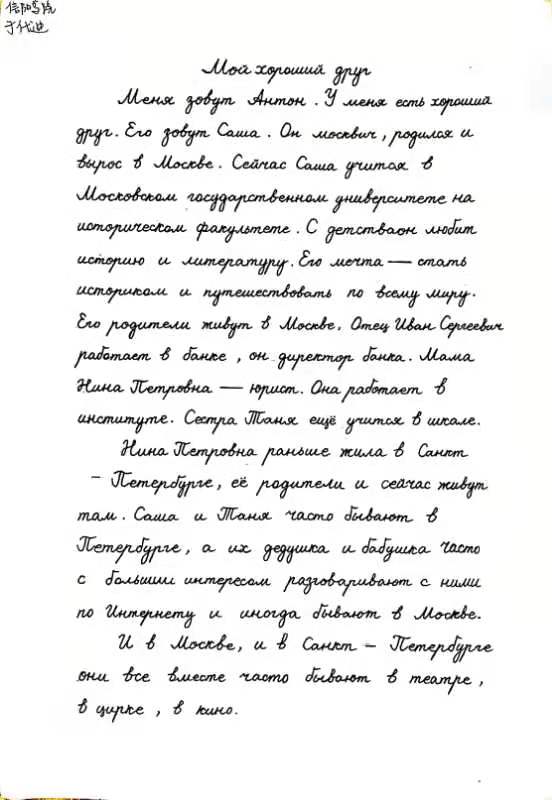 信阳学院
于代迪
Мой хороший друг
Меня зовут Антон. У меня есть хороший
друг. Его зовут Саша. Он москвич, родился и
вырос в Москве. Сейчас Саша учится в
Московском государственном университете на
историческом факультете. С детстваон любит
историю и литературу. Его мечта — стать
историком и путешествовать по всему миру.
Его родители живут в Москве. Отец Иван Сергеевич
работает в банке, он директор банка. Мама
Нина Петровна — юрист. Она работает в
институте. Сестра Таня ещё учится в шкале.
Нина Петровна раньше жила в Санкт
- Петербурге, её родители и сейчас живут
там. Саша и Таня часто бывают в
Петербурге, а их дедушка и бабушка часто
с большим интересом разговаривают с ними
по Интернету и иногда бывают в Москве.
И в Москве, и в Санкт - Петербурге
они все вместе часто бывают в театре,
в цирке, в кино.